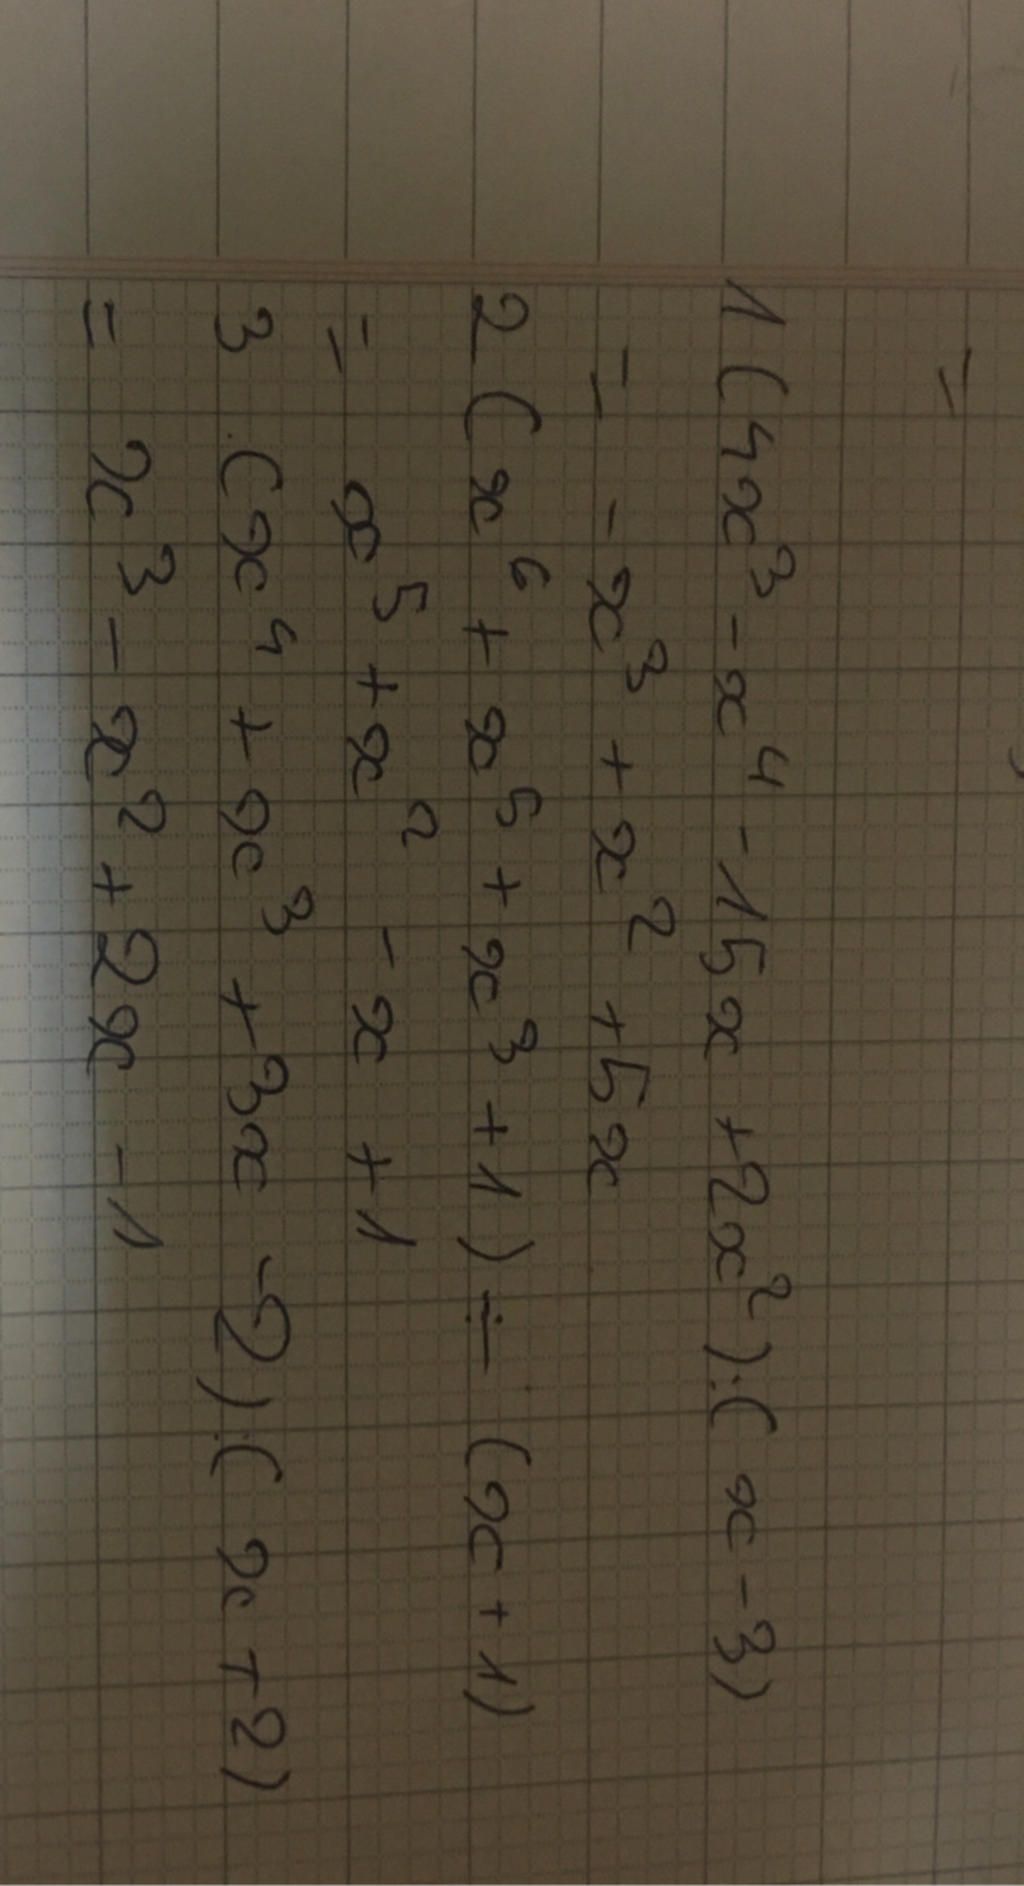 =
1 (4x³ - x⁴ - 15x + 2x²) : (x - 3)
= - x³ + x² + 5x
2 (x⁶ + x⁵ + x³ + 1) ÷ (x + 1)
= x⁵ + x² - x + 1
3 (x⁴ + x³ + 3x - 2) : (x + 2)
= x³ - x² + 2x - 1